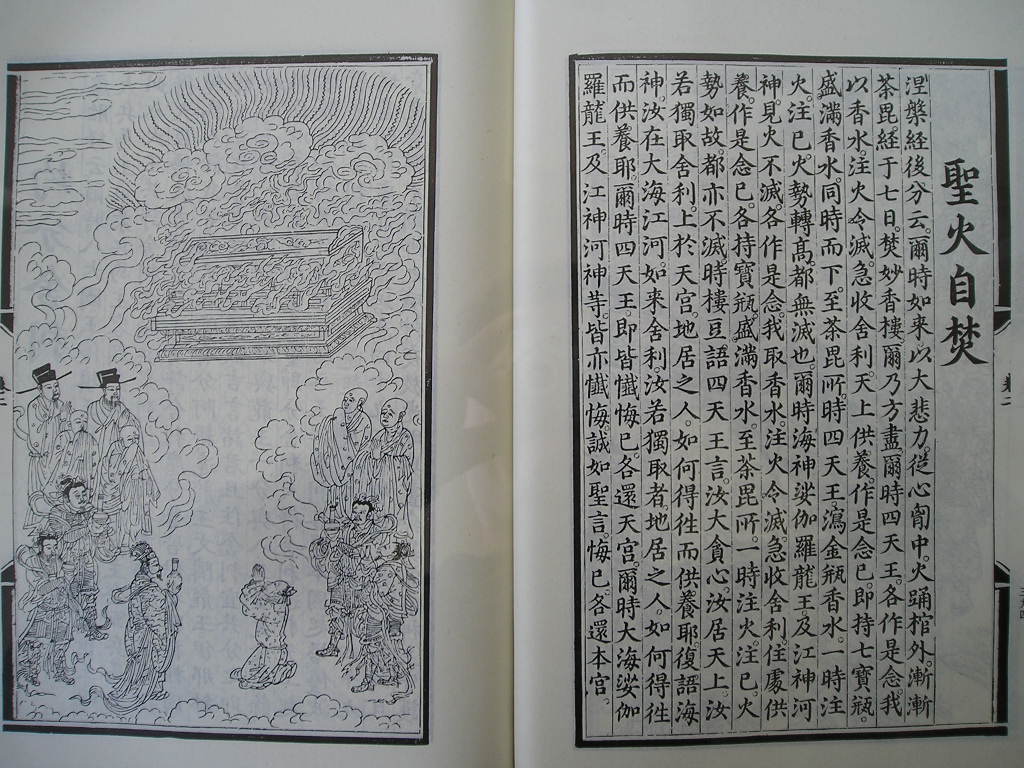 聖火自焚
涅槃經後分云。爾時如來以大悲力。從心胷中。火踊棺外。漸漸
荼毘。經于七日。焚妙香樓。爾乃方盡。爾時四天王。各作是念。我
以香水注火令滅。急收舍利。天上供養。作是念已。即持七寶瓶。
盛滿香水。同時而下。至荼毘所。時四天王。瀉金瓶香水。一時注
火。注已。火勢轉高。都無滅也。爾時海神。娑伽羅龍王。及江神河
神。見火不滅。各作是念。我取香水。注火令滅。急收舍利。住處供
養。作是念已。各持寶瓶。盛滿香水。至荼毘所。一時注火。注已。火
勢如故。都亦不滅。時樓豆語四天王言。汝大貪心。汝居天上。汝
若獨取舍利。上於天宮。地居之人。如何得徃而供養耶。復語海
神。汝在大海江河。如來舍利。汝若獨取者。地居之人。如何得徃
而供養耶。爾時四天王。即皆懺悔已。各還天宮。爾時大海娑伽
羅龍王。及江神河神等。皆亦懺悔。誠如聖言。悔已。各還本宮。
卷二